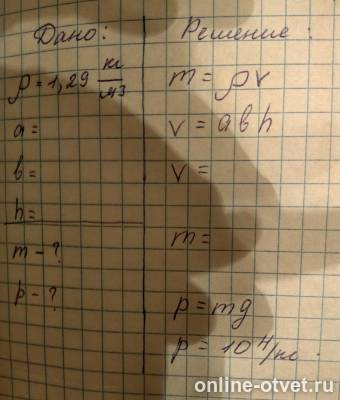 Дано:
ρ = 1,29 кг/м3
a =
b =
h =
m - ?
p - ?
Решение:
m = ρv
v = abh
v =
m =
p = mg
p = 10 Н/кг.
online-otvet.ru